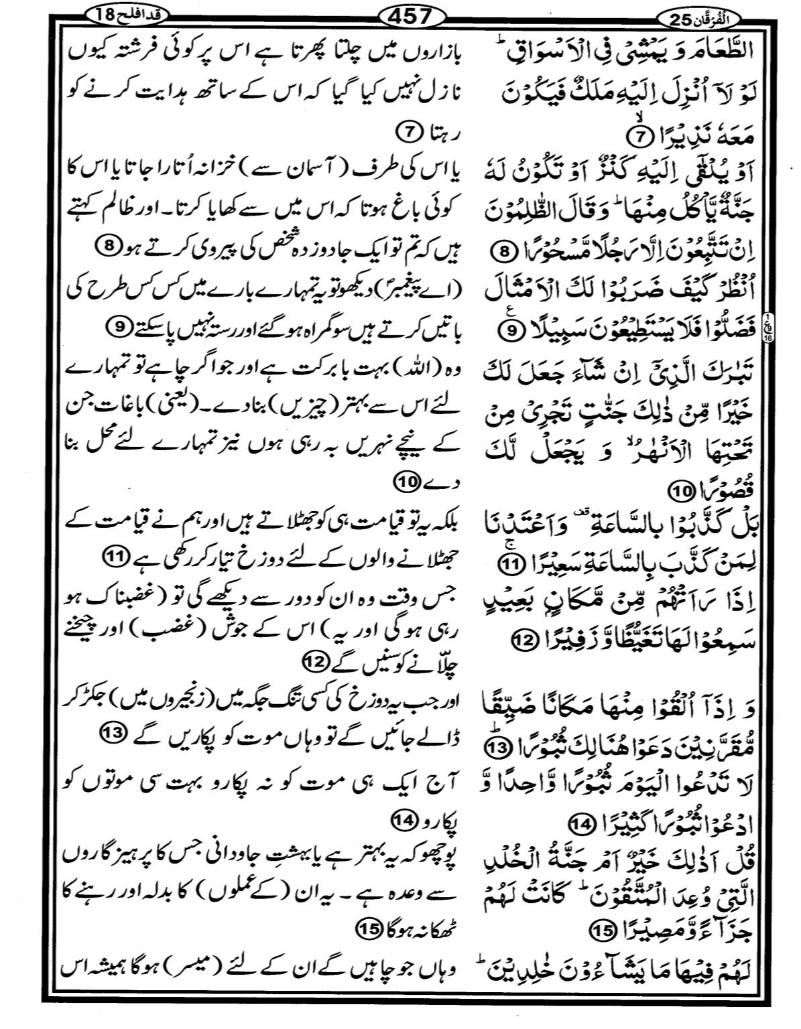 الفرقان 25
457
قد افلح 18
الطَّعَامَ وَ يَمْشِیْ فِی الْاَسْوَاقِ ؕ
لَوْ لَاۤ اُنْزِلَ اِلَیْهِ مَلَكٌ فَیَكُوْنَ
مَعَهٗ نَذِیْرًا ۙ 7
اَوْ یُلْقٰۤی اِلَیْهِ كَنْزٌ اَوْ تَكُوْنُ لَهٗ
جَنَّةٌ یَّاْكُلُ مِنْهَا ؕ وَ قَالَ الظّٰلِمُوْنَ
اِنْ تَتَّبِعُوْنَ اِلَّا رَجُلًا مَّسْحُوْرًا 8
اُنْظُرْ كَیْفَ ضَرَبُوْا لَكَ الْاَمْثَالَ
فَضَلُّوْا فَلَا یَسْتَطِیْعُوْنَ سَبِیْلًا 9 ع
تَبٰرَكَ الَّذِیْۤ اِنْ شَآءَ جَعَلَ لَكَ
خَیْرًا مِّنْ ذٰلِكَ جَنّٰتٍ تَجْرِیْ مِنْ
تَحْتِهَا الْاَنْهٰرُ ۙ وَ یَجْعَلْ لَّكَ
قُصُوْرًا 10
بَلْ كَذَّبُوْا بِالسَّاعَةِ ۫ وَ اَعْتَدْنَا
لِمَنْ كَذَّبَ بِالسَّاعَةِ سَعِیْرًا ۚ 11
اِذَا رَاَتْهُمْ مِّنْ مَّكَانٍۭ بَعِیْدٍ
سَمِعُوْا لَهَا تَغَیُّظًا وَّ زَفِیْرًا 12
وَ اِذَاۤ اُلْقُوْا مِنْهَا مَكَانًا ضَیِّقًا
مُّقَرَّنِیْنَ دَعَوْا هُنَالِكَ ثُبُوْرًا ؕ 13
لَا تَدْعُوا الْیَوْمَ ثُبُوْرًا وَّاحِدًا وَّ
ادْعُوْا ثُبُوْرًا كَثِیْرًا 14
قُلْ اَذٰلِكَ خَیْرٌ اَمْ جَنَّةُ الْخُلْدِ
الَّتِیْ وُعِدَ الْمُتَّقُوْنَ ؕ كَانَتْ لَهُمْ
جَزَآءً وَّ مَصِیْرًا 15
لَهُمْ فِیْهَا مَا یَشَآءُوْنَ خٰلِدِیْنَ ؕ
بازاروں میں چلتا پھرتا ہے اس پر کوئی فرشتہ کیوں
نازل نہیں کیا گیا کہ اس کے ساتھ ہدایت کرنے کو
رہتا 7
یا اس کی طرف (آسمان سے) خزانہ اُتارا جاتا یا اس کا
کوئی باغ ہوتا کہ اس میں سے کھایا کرتا۔ اور ظالم کہتے
ہیں کہ تم تو ایک جادو زدہ شخص کی پیروی کرتے ہو 8
(اے پیغمبرؐ) دیکھو تو یہ تمہارے بارے میں کس کس طرح کی
باتیں کرتے ہیں سو گمراہ ہو گئے اور رستہ نہیں پا سکتے 9
وہ (اللہ) بہت بابرکت ہے اور جو اگر چاہے تو تمہارے
لئے اس سے بہتر (چیزیں) بنا دے۔ (یعنی) باغات جن
کے نیچے نہریں بہ رہی ہوں نیز تمہارے لئے محل بنا
دے 10
بلکہ یہ تو قیامت ہی کو جھٹلاتے ہیں اور ہم نے قیامت کے
جھٹلانے والوں کے لئے دوزخ تیار کر رکھی ہے 11
جس وقت وہ ان کو دور سے دیکھے گی تو (غضبناک ہو
رہی ہو گی اور یہ) اس کے جوش (غضب) اور چیخنے
چلّانے کو سنیں گے 12
اور جب یہ دوزخ کی کسی تنگ جگہ میں (زنجیروں میں) جکڑ کر
ڈالے جائیں گے تو وہاں موت کو پکاریں گے 13
آج ایک ہی موت کو نہ پکارو بہت سی موتوں کو
پکارو 14
پوچھو کہ یہ بہتر ہے یا بہشتِ جاودانی جس کا پرہیزگاروں
سے وعدہ ہے۔ یہ ان (کے عملوں) کا بدلہ اور رہنے کا
ٹھکانہ ہو گا 15
وہاں جو چاہیں گے ان کے لئے (میسر) ہو گا ہمیشہ اس